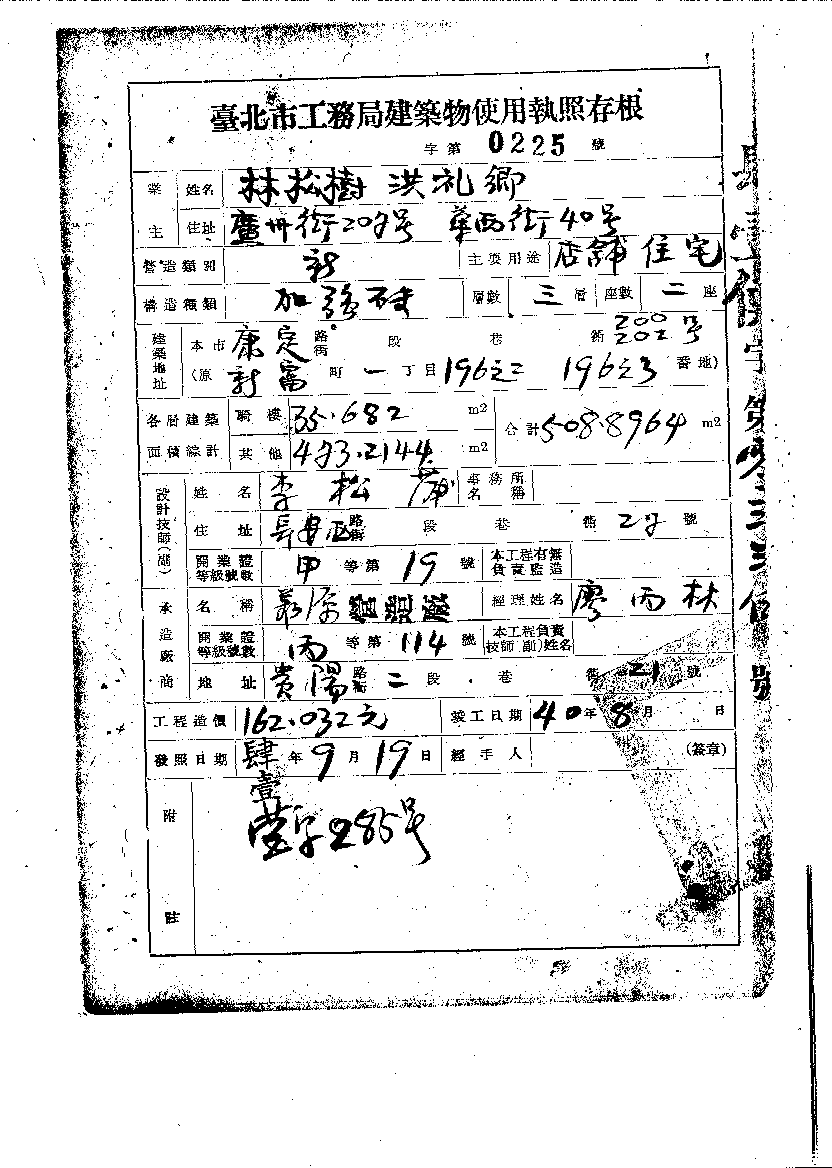 臺北市工務局建築物使用執照存根
字第 0225 號
業主 姓名 林松樹 洪礼卿
住址 廣州街209号 華西街40号
營造類別 新 主要用途 店舖住宅
構造種類 加強磚 層數 三層 座數 二座
建築地址 本市 康定 路街 段 巷 衖 200 202 号
(原 新富 町 一 丁目 196之2 196之3 番地)
各層建築面積總計 騎樓 35.682 m2 合計 508.8964 m2
其他 473.2144 m2
設計技師(副) 姓名 李松 事務所名稱
住址 長安西 路街 段 巷 衖 號
開業證等級號數 甲 等第 19 號 本工程有無負責監造
承造廠商 名稱 經理姓名 廖丙林
開業證等級號數 丙 等第 114 號 本工程負責技師(副)姓名
地址 貴陽 路街 二 段 巷 衖 21 號
工程造價 162.032元 竣工日期 40年8月 日
發照日期 肆壹年9月19日 經手人 (簽章)
附註 营字285号